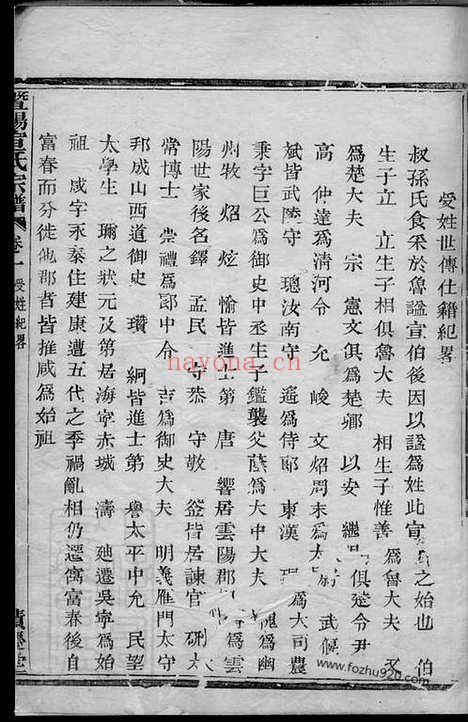 受姓世傳仕籍紀畧
叔孫氏食采於魯諡宣伯後因以諡爲姓此宣之始也　伯
生子立　立生子相俱魯大夫　相生子惟善　爲魯大夫　又
爲楚大夫　宗　憲文俱爲楚卿　以安　繼　俱楚令尹
高　仲達爲清河令　允　峻　文炤周末爲大　武候
斌皆武陵守　璁汝南守　遥爲侍郎　東漢　爲大司農
秉字巨公爲御史中丞生子鑑襲父蔭爲大中大夫　爲幽
州牧　炤　炫　愉皆進士第　唐　響居雲陽郡　爲雲
陽世家後名鐸　孟民　守恭　守敬　釜皆居諫官　大
常博士　崇禮爲郎中令　吉爲御史大夫　明義雁門太守
邦成山西道御史　瓚　綱皆進士第　譽太平中允　民望
太學生　瓛之狀元及第居海寧赤城　濤　廸遷吳寧爲始
祖　咸字永泰住建康遭五代之季禍亂相仍遷寓富春後自
富春而分徒他郡者皆推咸爲始祖
暨陽宣氏宗譜　卷一　受姓紀畧
nayona.cn
www.fozhu920.com